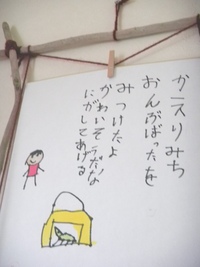 かえりみち
おんぶばったを
みつけたよ
かわいそうだな
にがしてあげる